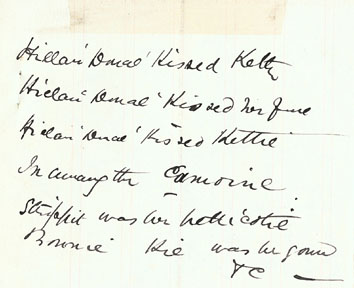 Hielan' Donal' Kissed Ketty
Hielan' Donal' Kissed her fine
Hielan' Donal' Kissed Kettie
In amang the Camoine
Strippit was her petticotie
Bonnie Kie was her goun
&C —